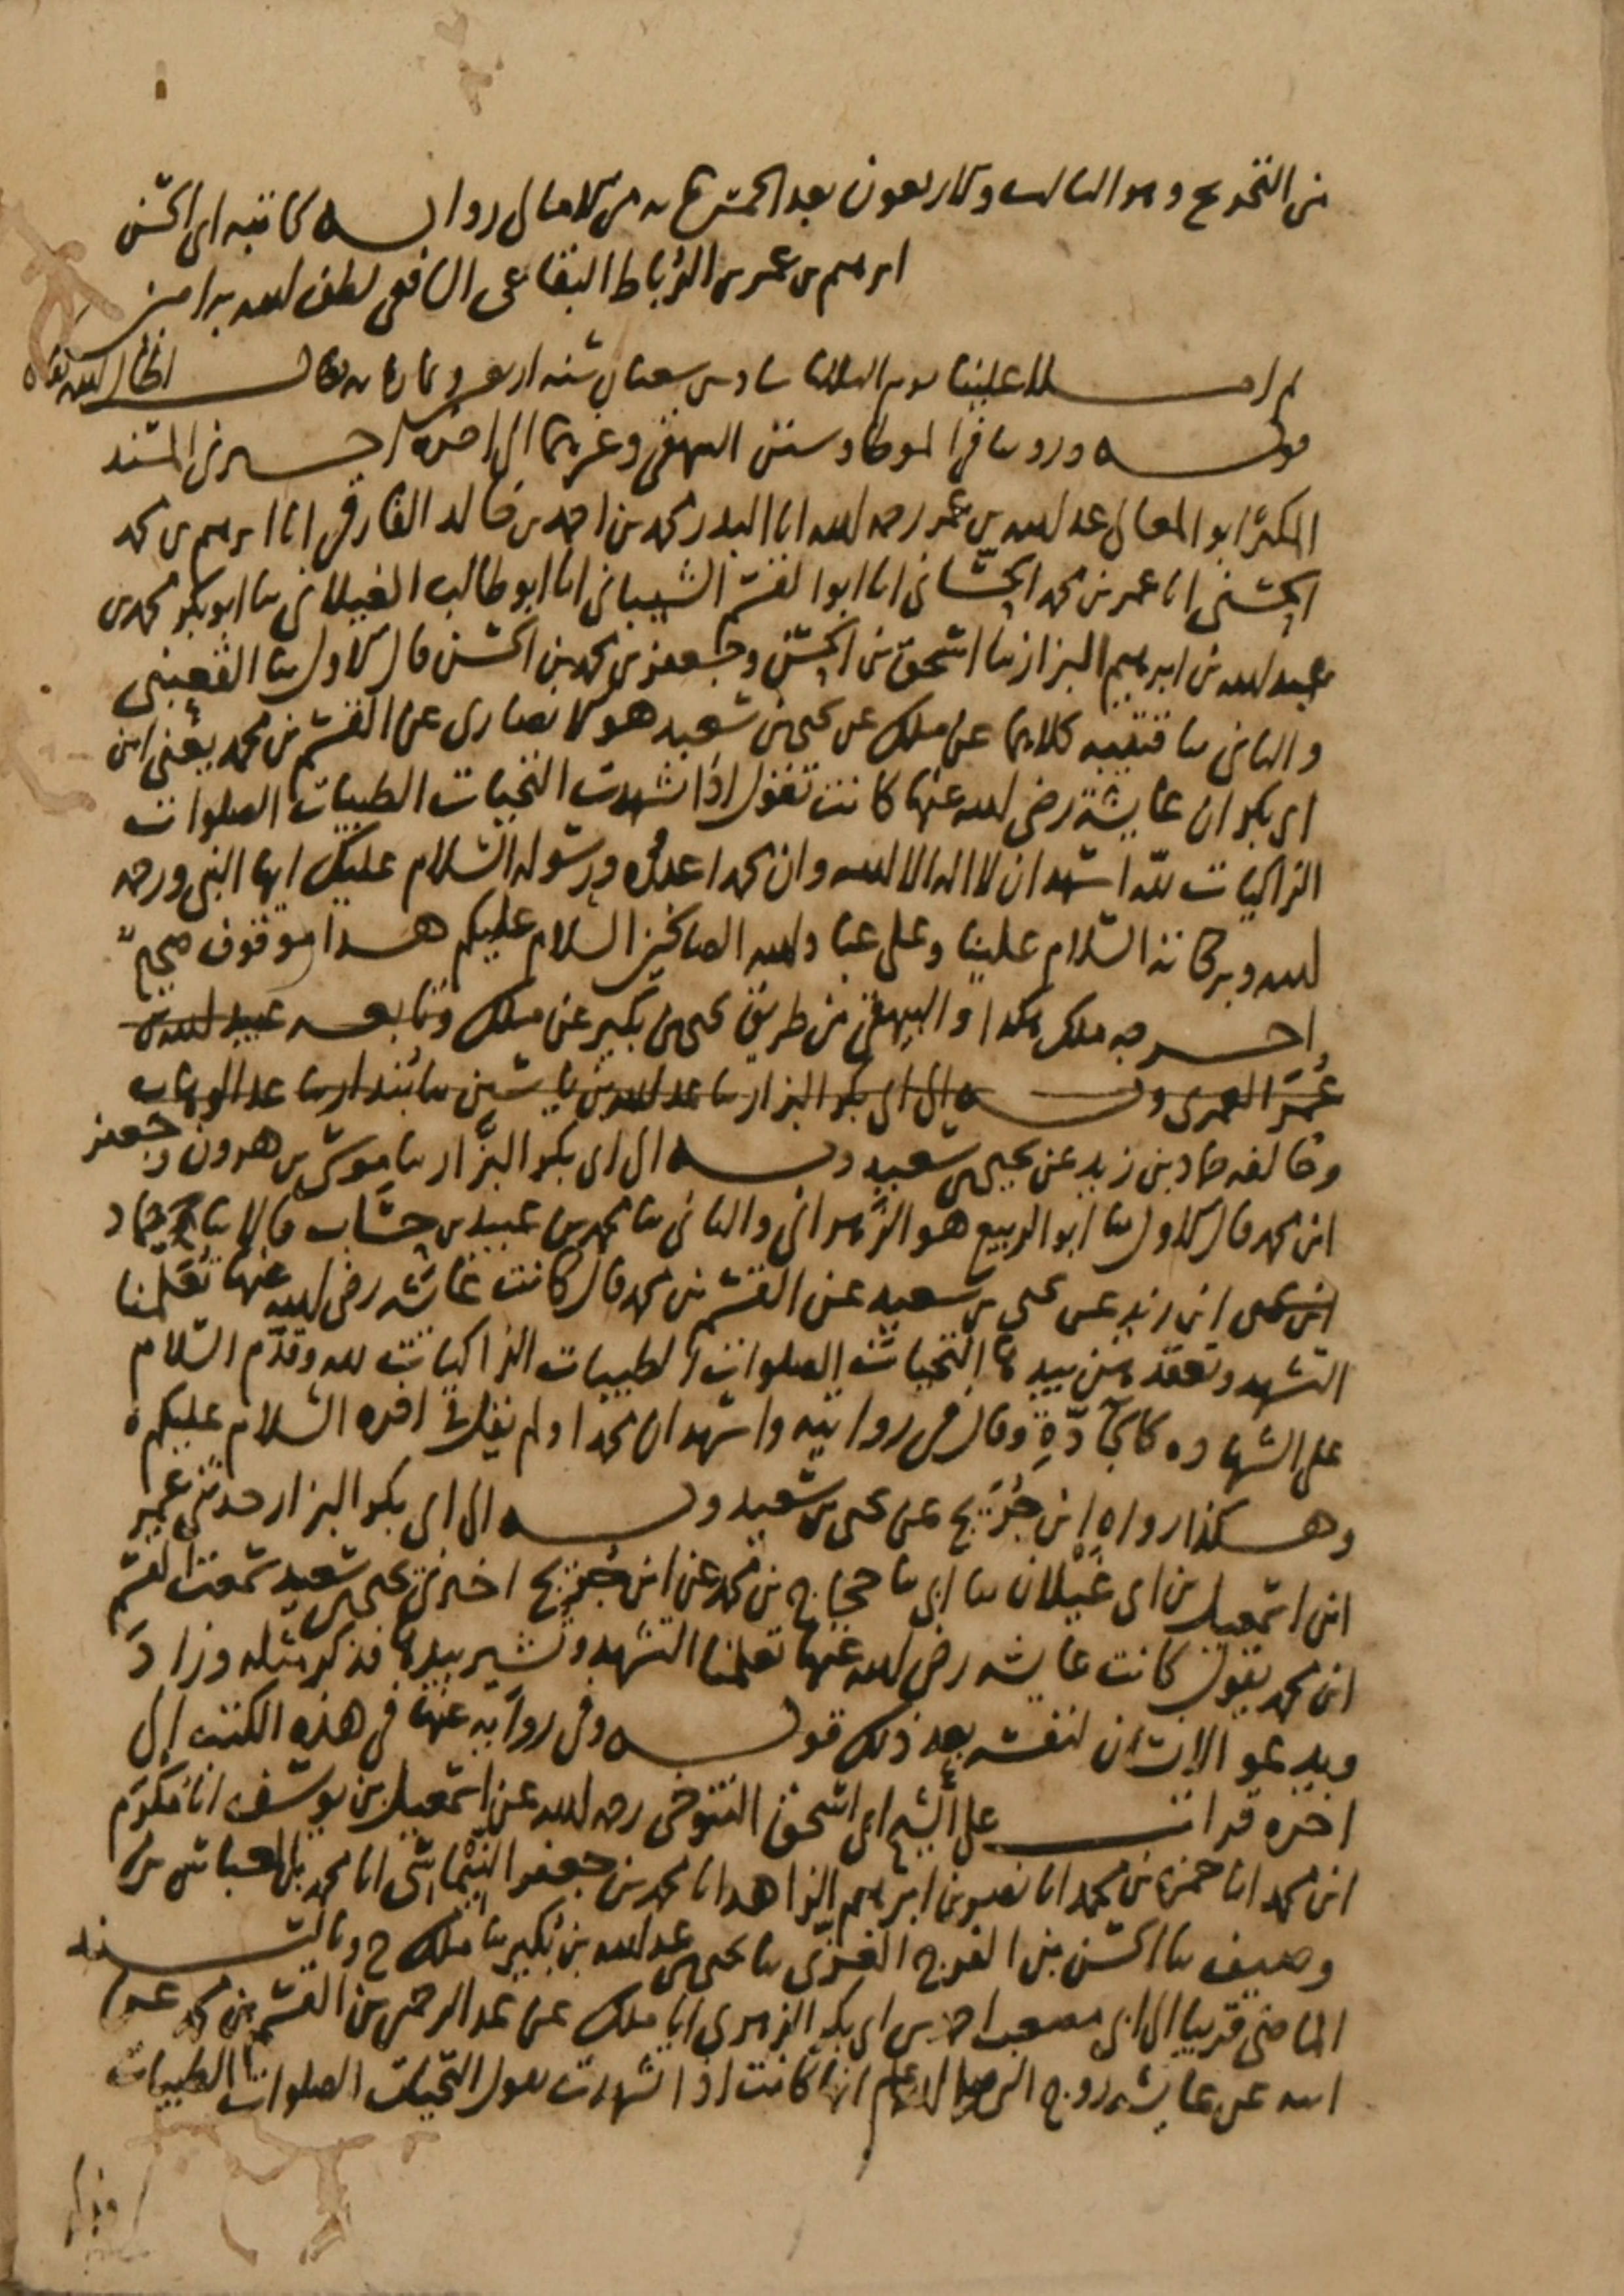 من التخريج وهو الثالث والاربعون بعد الخمس مايه من الامالي رواية كاتبه ابي الحسن
ابرهيم بن عمر بن الرباط البقاعي الشافعي لطف الله به امين
ثم املا علينا يوم الثلاثا سادس شعبان سنه اربعين وثمان مايه فقال اطال الله بقاه
قوله وروينا في الموطا وسنن البيهقي وغيرهما الى اخره اخبرني المسند
المكثر ابو المعالي عبد الله بن عمر رحمه الله انا البدر محمد بن احمد بن خالد الفارقي انا ابرهيم بن محمد
الحسني انا عمر بن محمد الحساني انا ابو القسم الشيباني انا ابو طالب الغيلاني ثنا ابو بكر محمد بن
عبد الله بن ابرهيم البزاز ثنا اسحق بن الحسن وجعفر بن محمد بن الحسن قال الاول ثنا القعنبي
والثاني ثنا قتيبه كلاهما عن ملك عن يحيى بن سعيد هو الانصاري عن القسم بن محمد يعني ابن
ابي بكر ان عايشة رضي الله عنها كانت تقول اذا تشهدت التحيات الطيبات الصلوات
الزاكيات لله اشهد ان لا اله الا الله وان محمدا عبده ورسوله السلام عليك ايها النبي ورحمه
الله وبركاته السلام علينا وعلى عباد الله الصالحين السلام عليكم هذا موقوف صحيح
اخرجه ملك هكذا والبيهقي من طريق يحيى بن بكير عن ملك وتابعه عبيد الله بن
عمر العمري وبه الى ابي بكر البزاز ثنا عبد الله بن ياسين ثنا بندار ثنا عبد الوهاب
وخالفه حماد بن زيد عن يحيى بن سعيد وبه الى ابي بكر البزاز ثنا موسى بن هرون وجعفر
ابن محمد قال الاول ثنا ابو الربيع هو الزهراني والثاني ثنا محمد بن عبيد بن حساب قالا ثنا حماد
ابن يحيى ابن زيد عن يحيى بن سعيد عن القسم بن محمد قال كانت عايشه رضي الله عنها تعلمنا
التشهد وتعقد بيدها التحيات الصلوات الطيبات الزاكيات لله وقدم السلام
على الشهاده كالجادة وقال في روايته واشهد ان محمدا ولم يقل في اخره السلام عليكم
وهكذا رواه ابن جريج عن يحيى بن سعيد وبه الى ابي بكر البزاز حدثني عمر
ابن اسمعيل بن ابي غيلان ثنا ابي ثنا حجاج بن محمد عن ابن جريج اخبرني يحيى بن سعيد سمعت القسم
ابن محمد يقول كانت عايشه رضي الله عنها تعلمنا التشهد وتشير بيدها فذكر مثله وزاد
ويدعو الانسان لنفسه بعد ذلك قوله وفي رواية عنها في هذه الكتب الى
اخره قرات على الشيخ ابي اسحق التنوخي رحمه الله عن اسمعيل بن يوسف انا مكرم
ابن محمد انا حمزة بن محمد انا نصر بن ابرهيم الزاهد انا محمد بن جعفر الميماسي انا محمد بن العباس بن
وصيف ثنا الحسن بن الفرج الغزي ثنا يحيى بن عبد الله بن بكير ثنا ملك ح وبالسند
الماضي قريبا الى ابي مصعب احمد بن ابي بكر الزهري انا ملك عن عبد الرحمن بن القسم بن محمد عن
ابيه عن عايشه زوج النبي صلى الله عليه وسلم انها كانت اذا تشهدت تقول التحيات الصلوات الطيبات